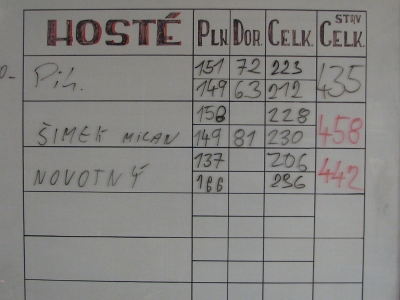 HOSTÉ PLN DOR. CELK. STAV CELK.
151 72 223
Piš. 149 63 212 435
158 228
ŠIMEK MILAN 149 81 230 458
137 206
NOVOTNÝ 166 236 442